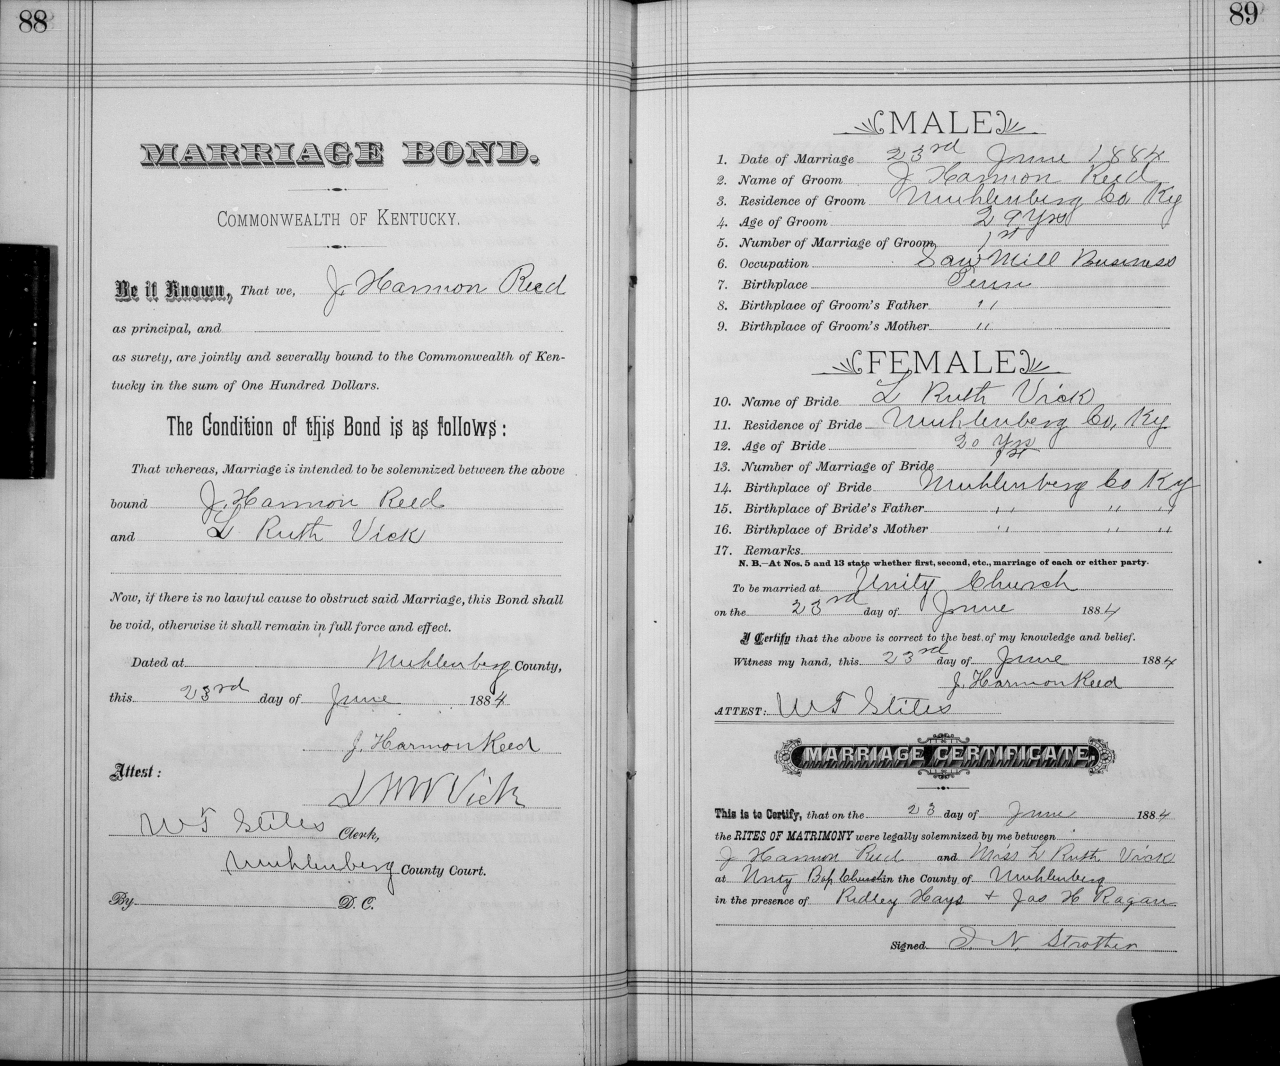 88
MARRIAGE BOND.
COMMONWEALTH OF KENTUCKY.
Be it Known, That we, J Harmon Reed
as principal, and
as surety, are jointly and severally bound to the Commonwealth of Ken-
tucky in the sum of One Hundred Dollars.
The Condition of this Bond is as follows:
That whereas, Marriage is intended to be solemnized between the above
bound J. Harmon Reed
and L Ruth Vick
Now, if there is no lawful cause to obstruct said Marriage, this Bond shall
be void, otherwise it shall remain in full force and effect.
Dated at Muhlenberg County,
this 23rd day of June 1884
J. Harmon Reed
Attest:
L W Vick
W T Stiles Clerk,
Muhlenberg County Court.
By D. C.
89
MALE
1. Date of Marriage 23rd June 1884
2. Name of Groom J Harmon Reed
3. Residence of Groom Muhlenberg Co Ky
4. Age of Groom 29 Yrs
5. Number of Marriage of Groom, 1st
6. Occupation Saw Mill Business
7. Birthplace Tenn
8. Birthplace of Groom's Father "
9. Birthplace of Groom's Mother "
FEMALE
10. Name of Bride L Ruth Vick
11. Residence of Bride Muhlenberg Co, Ky
12. Age of Bride 20 Yrs
13. Number of Marriage of Bride 1st
14. Birthplace of Bride Muhlenberg Co Ky
15. Birthplace of Bride's Father " " "
16. Birthplace of Bride's Mother " " "
17. Remarks
N. B.—At Nos. 5 and 13 state whether first, second, etc., marriage of each or either party.
To be married at Unity Church
on the 23rd day of June 1884
I Certify that the above is correct to the best of my knowledge and belief.
Witness my hand, this 23rd day of June 1884
J. Harmon Reed
ATTEST: W T Stiles
MARRIAGE CERTIFICATE.
This is to Certify, that on the 23 day of June 1884
the RITES OF MATRIMONY were legally solemnized by me between
J Harmon Reed and Miss L Ruth Vick
at Unity Bap Church in the County of Muhlenberg
in the presence of Ridley Hays + Jas H Ragan
Signed. J. N. Strother